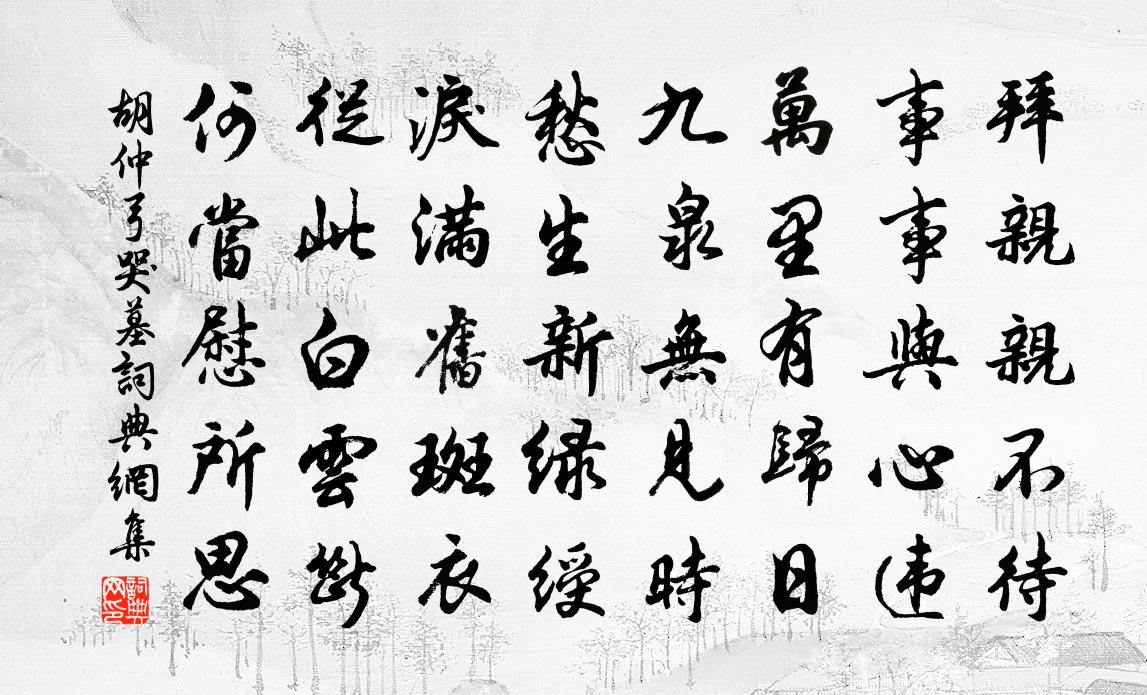 拜親親不待
事事與心违
萬里有歸日
九泉無見時
愁生新绿綬
淚滿舊斑衣
從此白雲斷
何當慰所思
胡仲弓哭墓詞典網集
詞典